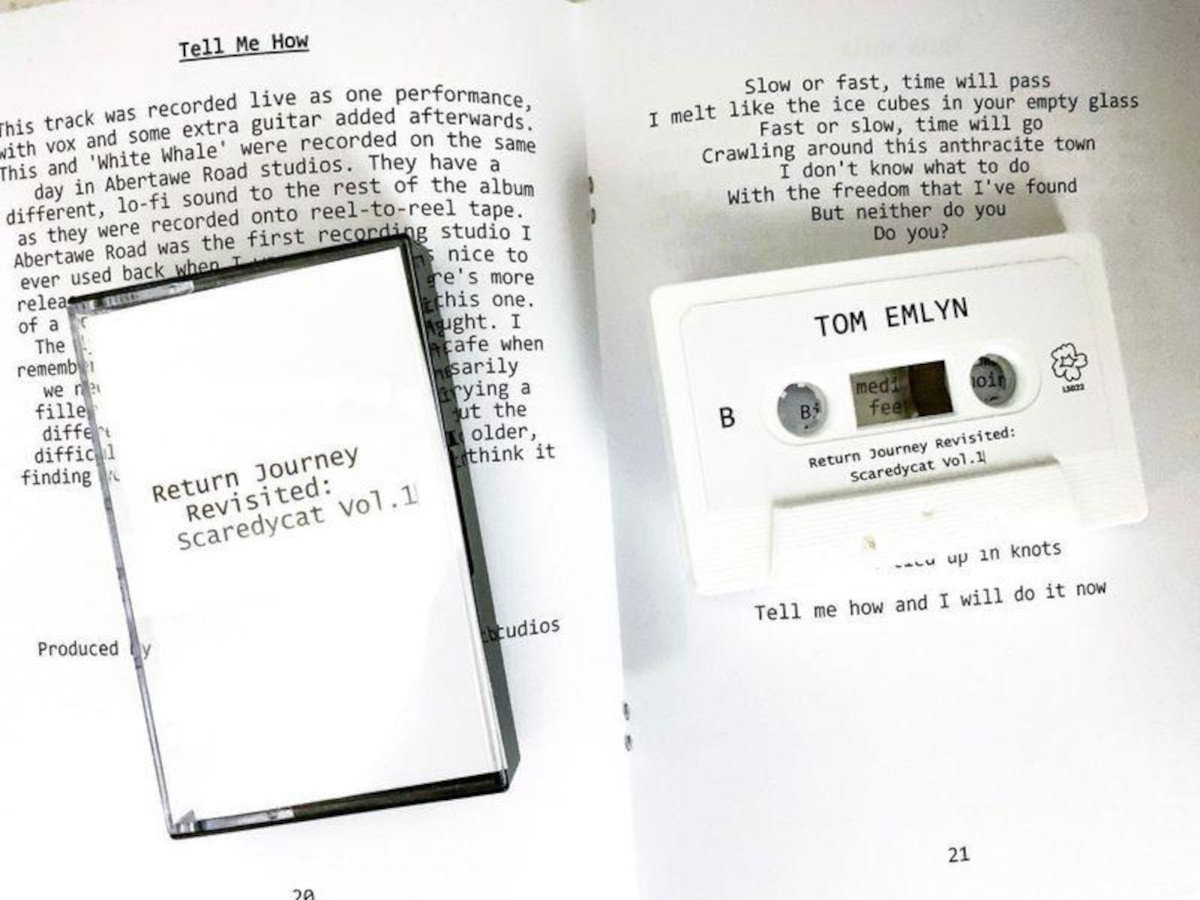 Tell Me How
This track was recorded live as one performance,
with vox and some extra guitar added afterwards.
This and 'White Whale' were recorded on the same
day in Abertawe Road studios. They have a
different, lo-fi sound to the rest of the album
as they were recorded onto reel-to-reel tape.
Abertawe Road was the first recording studio I
ever used back when I nice to
more
of a this one.
The I
cafe when
we
a
the
older,
finding think it
Produced by
20
Return Journey
Revisited:
Scaredycat Vol.1
Slow or fast, time will pass
I melt like the ice cubes in your empty glass
Fast or slow, time will go
Crawling around this anthracite town
I don't know what to do
With the freedom that I've found
But neither do you
Do you?
TOM EMLYN
B
Return Journey Revisited:
Scaredycat Vol.1
up in knots
Tell me how and I will do it now
21